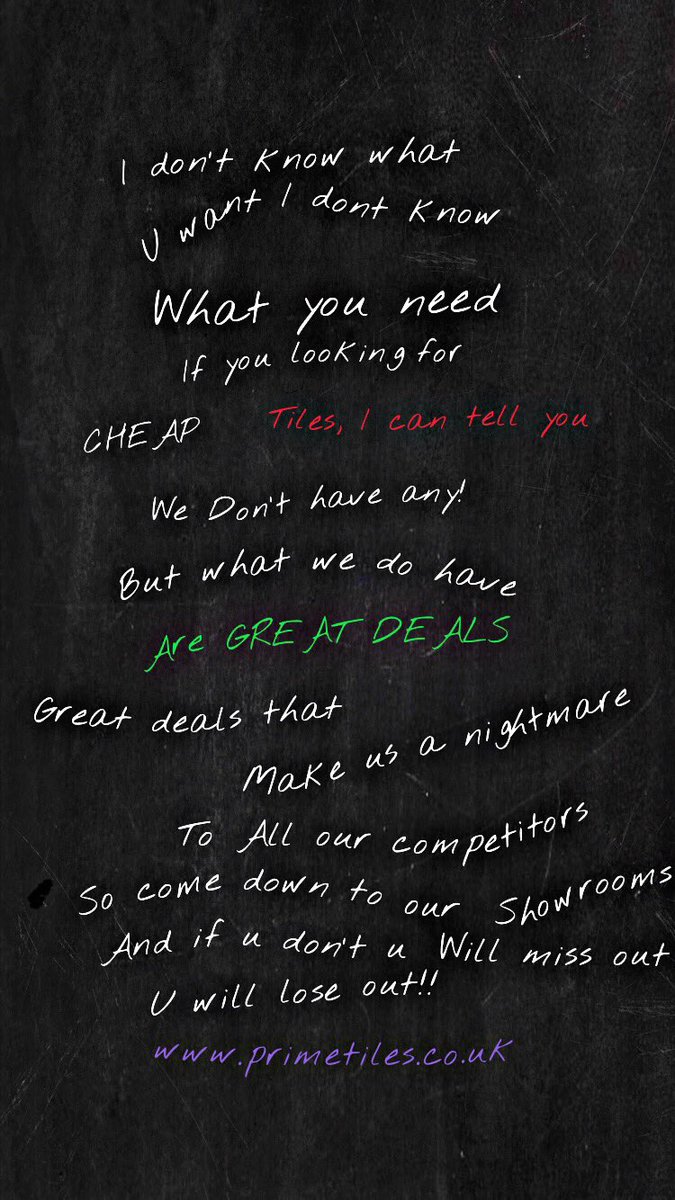 I don't know what
U want I dont know
What you need
If you looking for
CHEAP Tiles, I can tell you
We Don't have any!
But what we do have
Are GREAT DEALS
Great deals that
Make us a nightmare
To All our competitors
So come down to our Showrooms
And if u don't u Will miss out
U will lose out!!
www.primetiles.co.uk